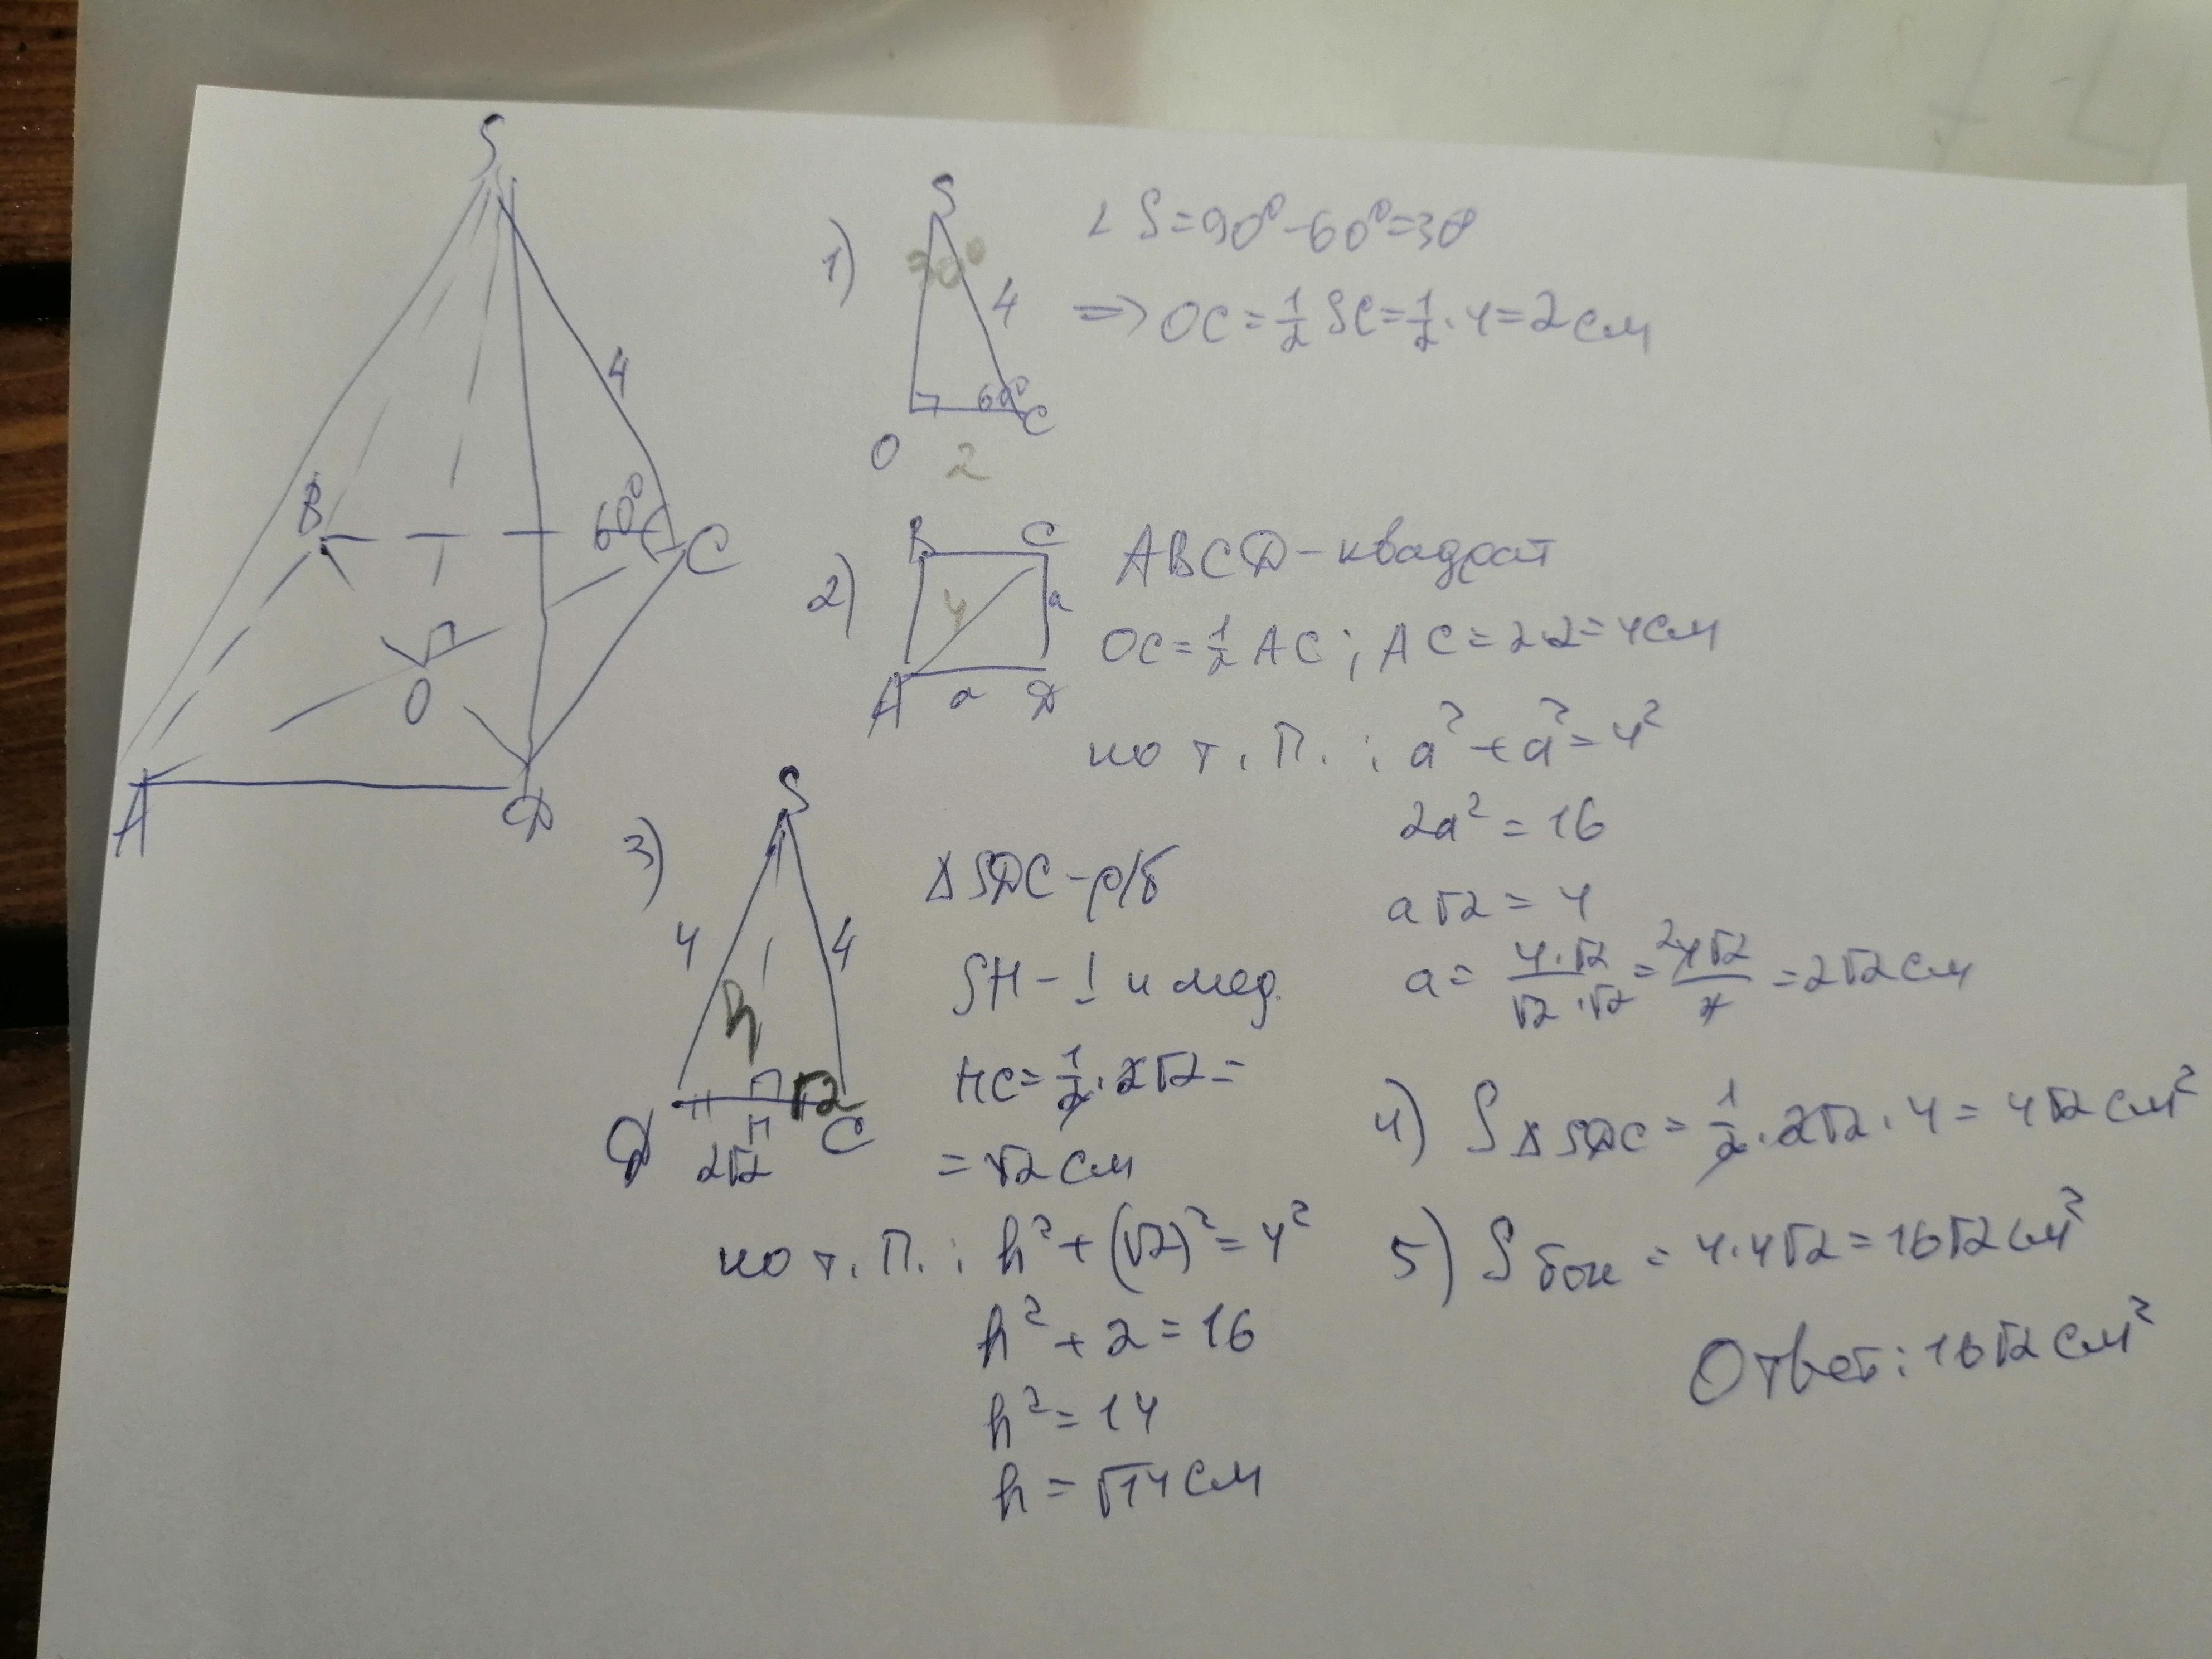 S
4
B
60°
C
O
A
D
1)
S
30°
4
60°
O
C
2
∠ S = 90° - 60° = 30
=> OC = 1/2 SC = 1/2 · 4 = 2 см
2)
B
C
4
a
A
a
D
ABCD - квадрат
OC = 1/2 AC ; AC = 2·2 = 4 см
по т. П. : a² + a² = 4²
2a² = 16
a√2 = 4
a = 4·√2/√2·√2 = ²4√2/2 = 2√2 см
3)
S
4
4
h
√2
D
H
C
2√2
Δ SDC - р/б
SH - ⊥ и мед.
HC = 1/2 · 2√2 =
= √2 см
по т. П. : h² + (√2)² = 4²
h² + 2 = 16
h² = 14
h = √14 см
4) S Δ SDC = 1/2 · 2√2 · 4 = 4√2 см²
5) S бок = 4·4√2 = 16√2 см²
Ответ: 16√2 см²